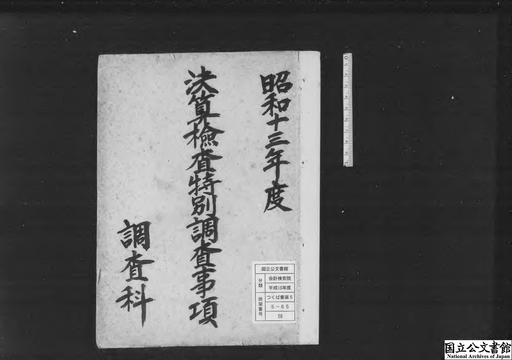 昭和十三年度
決算檢査特別調査事項
調査科
国立公文書館
分類
会計検査院
平成15年度
つくば書庫5
5-65
国立公文書館
National Archives of Japan